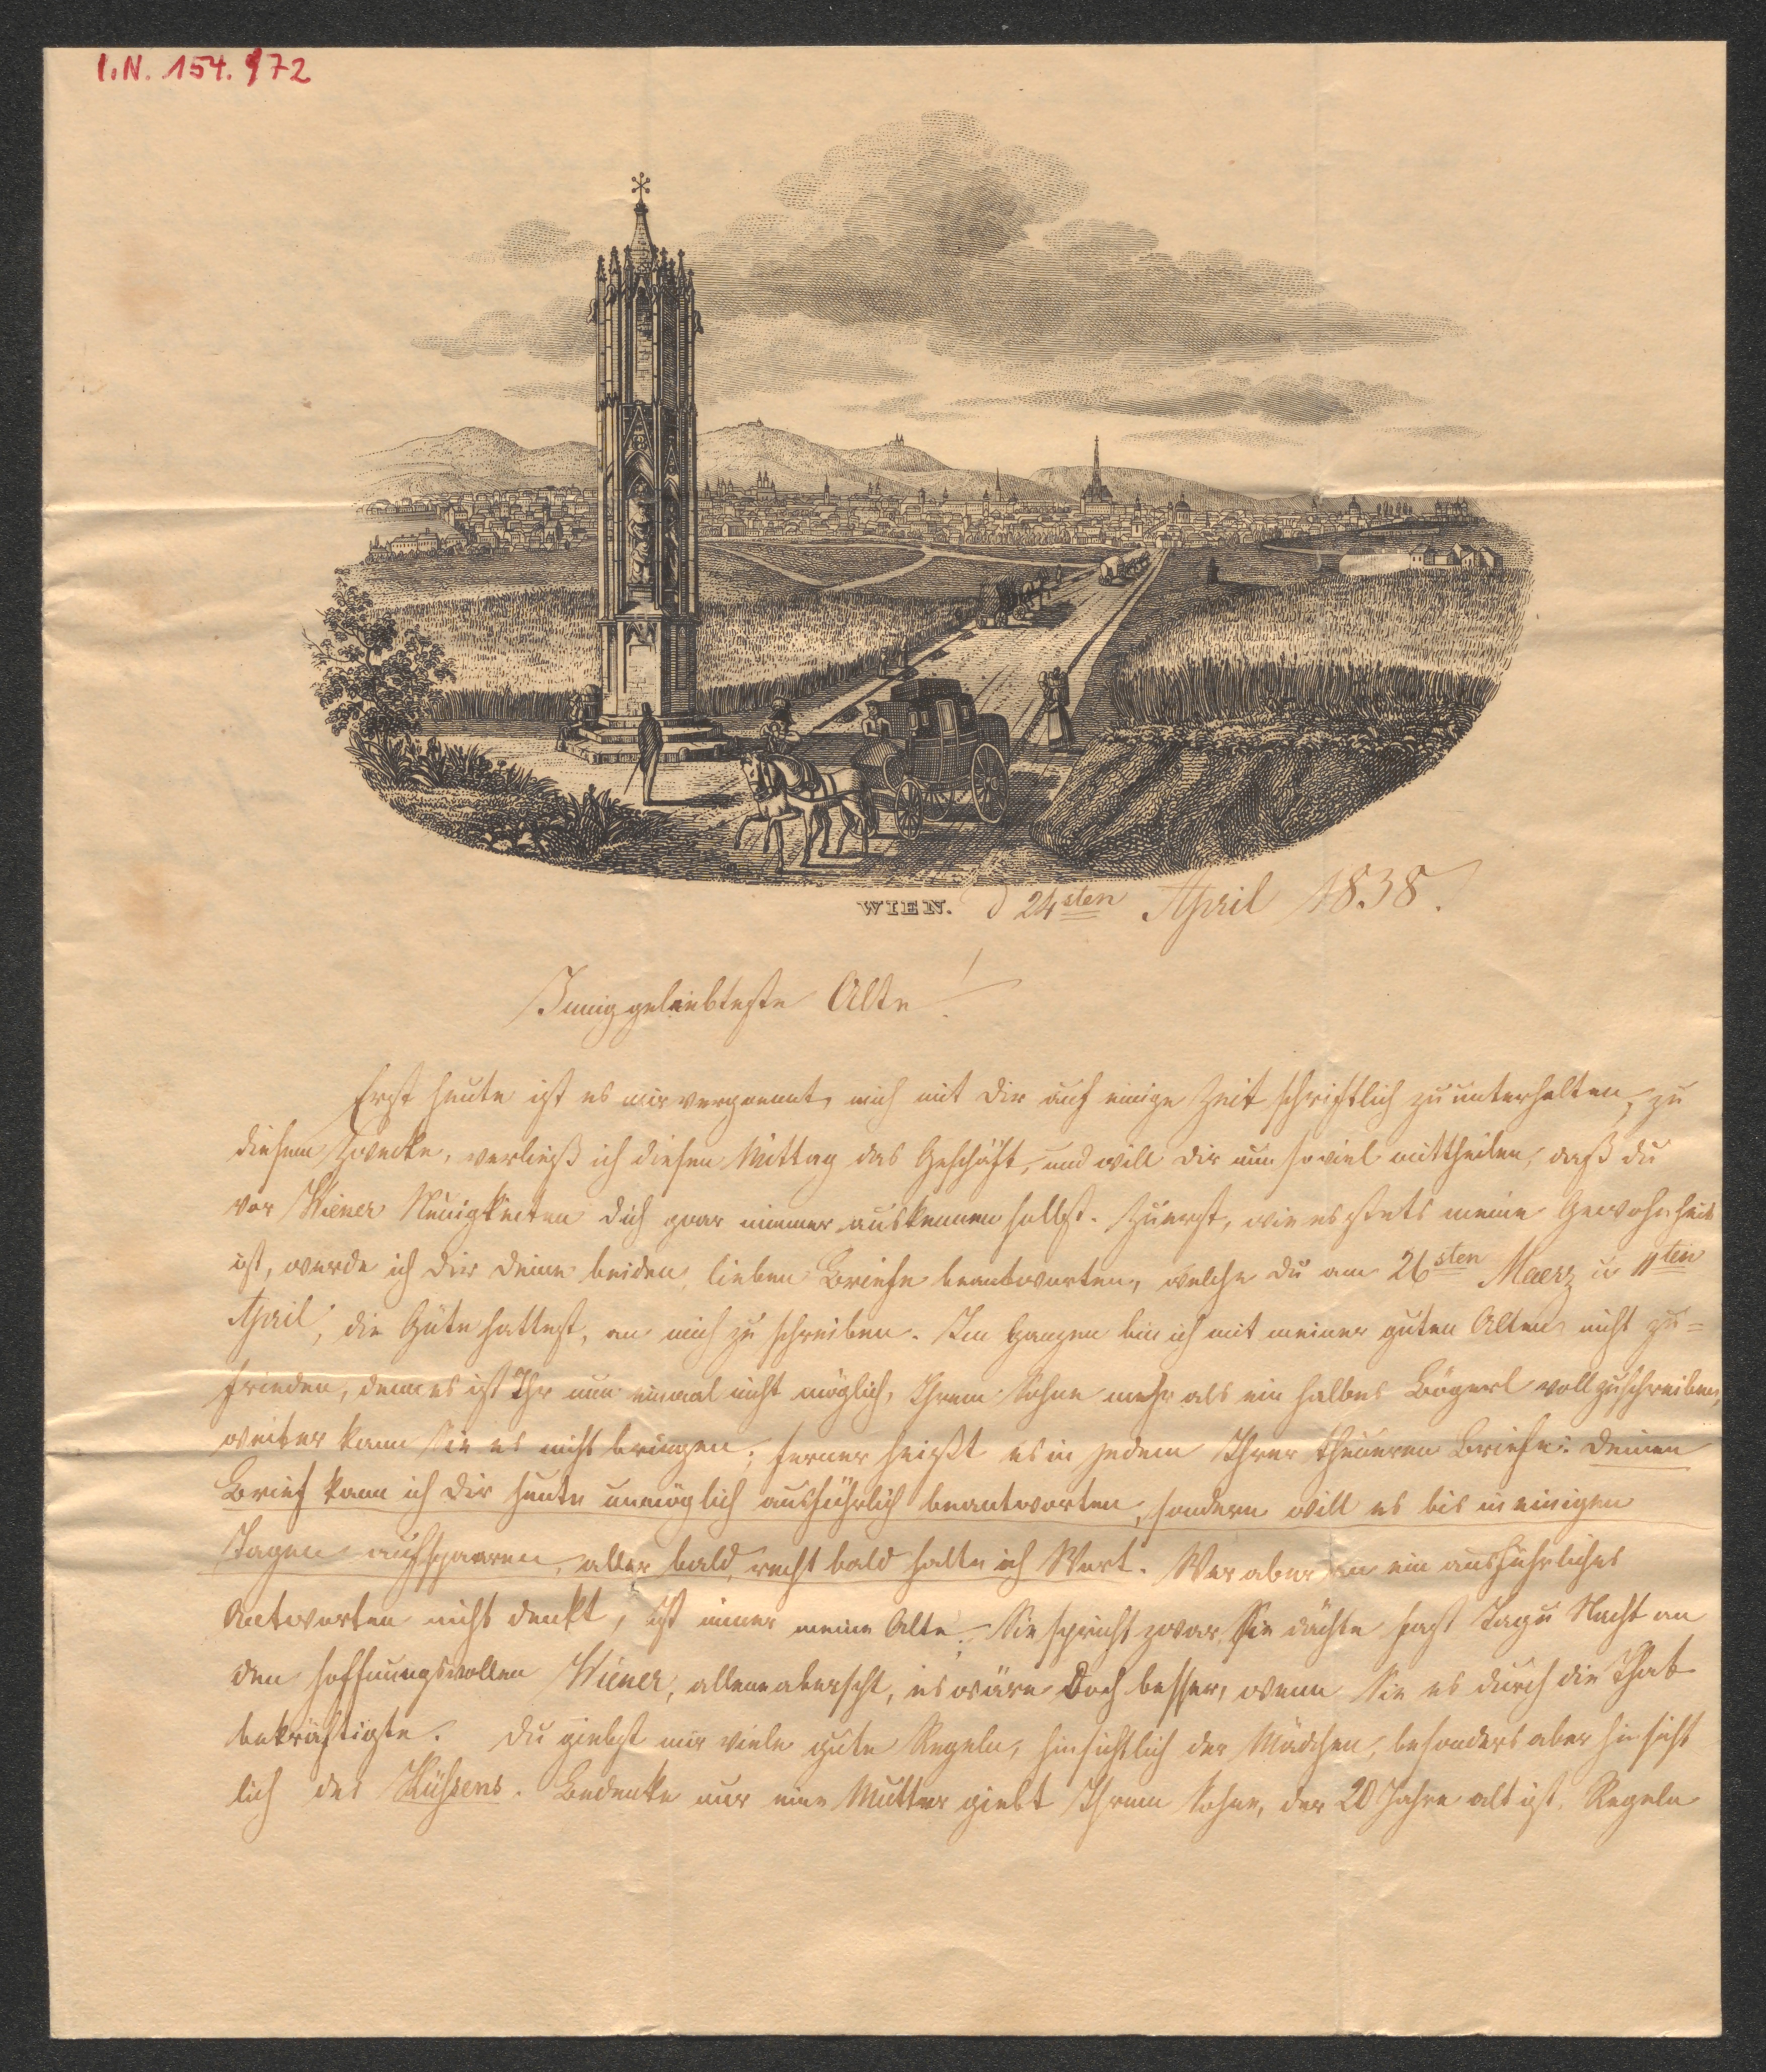 I.N. 154.972
WIEN. d 24sten April 1838.
Innig geliebteste Alte!
Erst heute ist es mir vergoennt, mich mit Dir auf einige Zeit schriftlich zu unterhalten, zu
diesem Zwecke, verließ ich diesen Mittag das Geschäft, und will Dir nun soviel mittheilen, daß du
vor Wiener Neuigkeiten dich gaar nimmer auskennen sollst. Zuerst, wie es stets meine Gewohnheit
ist, werde ich Dir Deine beiden lieben Briefe beantworten, welche Du am 26sten Maerz u 11ten
April, die Güte hattest, an mich zu schreiben. Im Ganzen bin ich mit meiner guten Alten nicht zu=
frieden, denn es ist Ihr nun einmal nicht möglich, Ihrem Sohne mehr als ein halbes Bögerl voll zu schreiben,
weiter kann Sie es nicht bringen; ferner heißt es in jedem Ihrer theueren Briefe: Deinen
Brief kann ich Dir heute unmöglich ausführlich beantworten, sondern will es bis in einigen
Tagen aufspaaren, aber bald, recht bald halte ich Wort. Wer aber an ein ausführliches
Antworten nicht denkt, ist immer meine Alte. Sie spricht zwar, Sie dächte fast Tag u Nacht an
den hoffnungsvollen Wiener, es wäre Doch besser, wenn Sie es durch die That
bekräftigte. Du giebst mir viele gute Regeln, hinsichtlich der Mädchen, besonders aber hinsicht
lich des Küssens. Bedenke nur eine Mutter giebt Ihrem Sohne, der 20 Jahre alt ist, Regeln